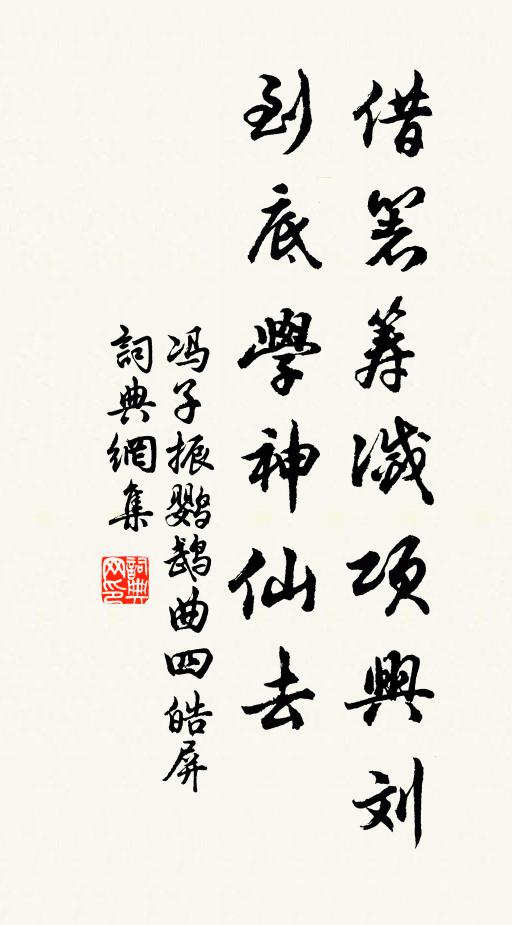 借箸筹滅项興刘
到底學神仙去
冯子振鹦鹉曲四皓屏
詞典網集
詞典網印